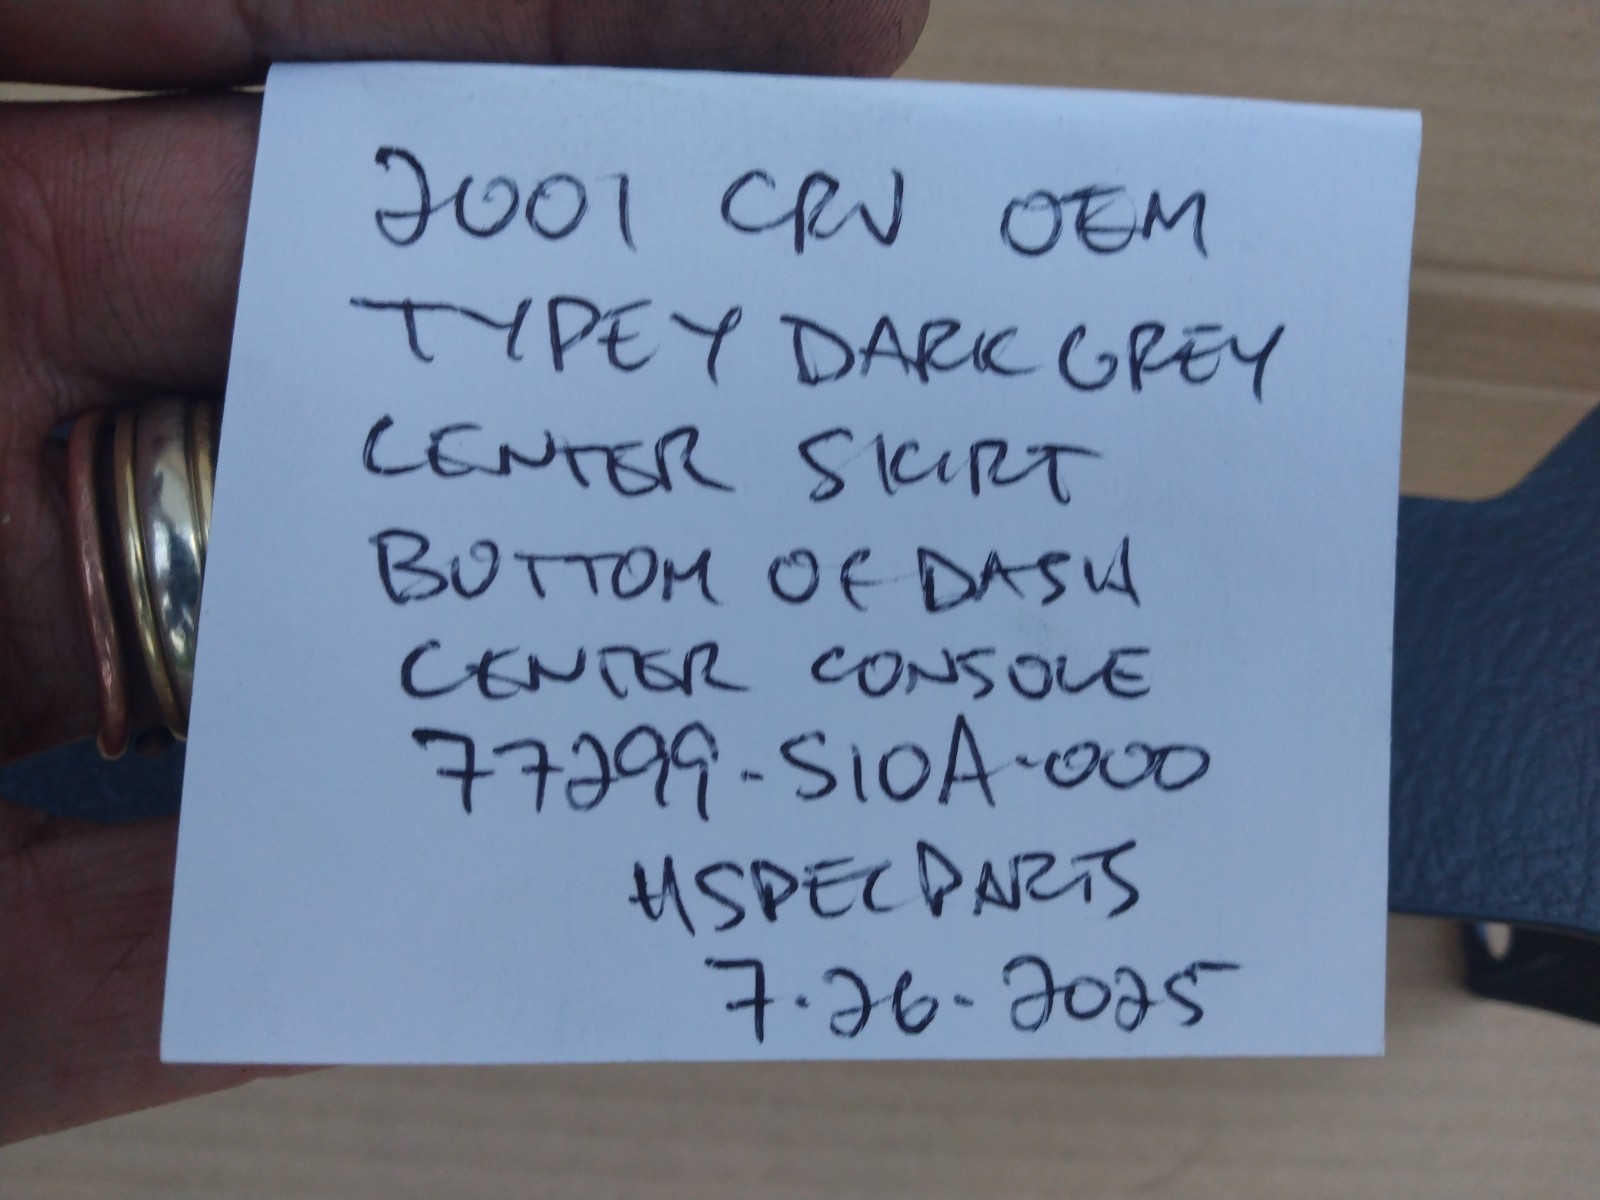 2001 CRV OEM
TYPE Y DARK GREY
CENTER SKIRT
BOTTOM OF DASH
CENTER CONSOLE
77299-S10A-000
HSPECPARTS
7-26-2025